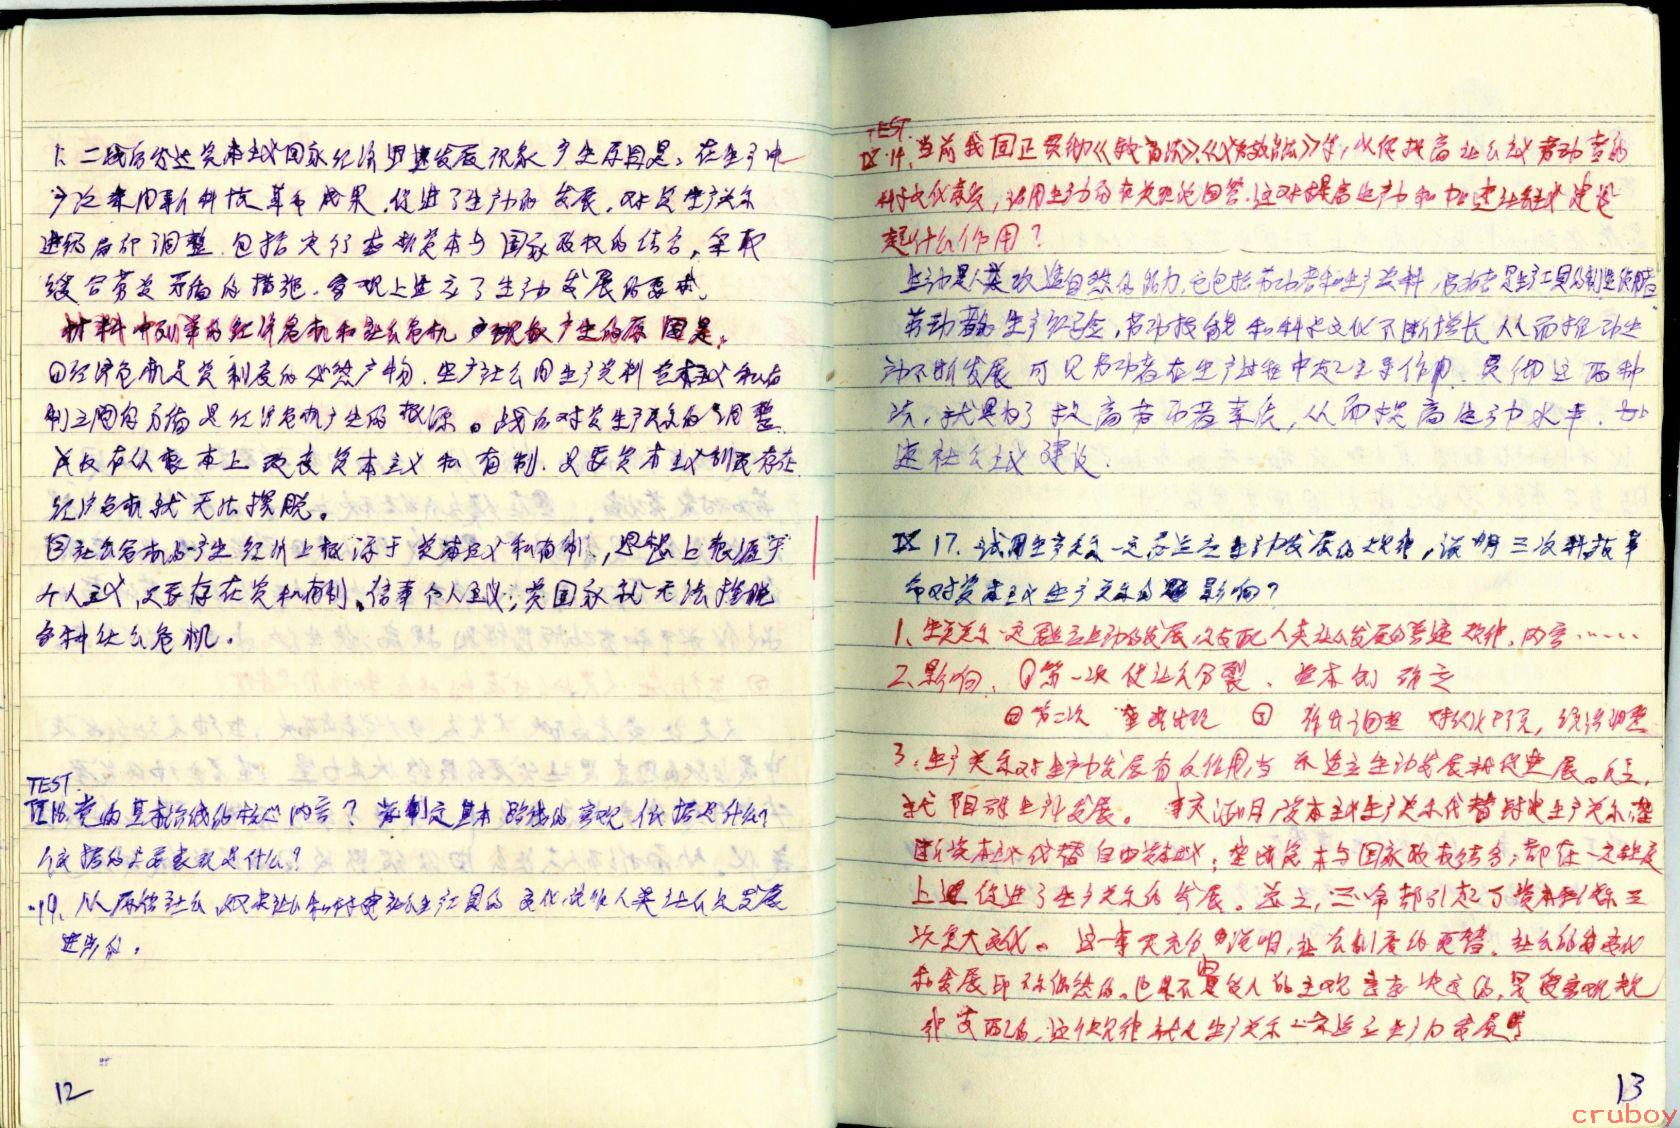 1. 二战后发达资本主义国家经济迅速发展现象产生原因是：在生产中
广泛采用新科技革命成果，促进了生产力的发展，对资生产关系
进行局部调整，包括实行垄断资本与国家政权的结合，采取
缓合劳资矛盾的措施，客观上适应了生产力发展的要求。
材料中列举的经济危机和社会危机现象产生的原因是：
①经济危机是资制度的必然产物，生产社会同生产资料资本主义私有
制之间的矛盾是经济危机产生的根源。战后对资生产关系的调整
没有从根本上改变资本主义私有制，只要资本主义制度存在
经济危机就无法摆脱。
②社会危机的产生经济上根源于资本主义私有制，思想上根源于
个人主义，只要存在资私有制、信奉个人主义，资国家就无法摆脱
各种社会危机。
TEST.
Ⅱ18.党的基本路线的核心内容？党制定基本路线的客观依据是什么？
依据的主要表现是什么？
19. 从原始社会、奴隶社会和封建社会生产工具的变化说明人类社会是发展
进步的。
12
TEST.
Ⅳ.14.当前我国正贯彻《教育法》、《义务教育法》等，以便提高社会主义劳动者的
科学文化素质，请用生产力的有关观点回答，这对提高生产力和加速社会主义建设
起什么作用？
生产力是人类改造自然的能力，它包括劳动者和生产资料，劳动者是生产工具的制造使用者
劳动者的生产经验，劳动技能和科学文化不断增长从而推动生
产力不断发展 可见劳动者在生产过程中起主导作用。贯彻这两种
法，就是为了提高劳动者素质，从而提高生产力水平，加
速社会主义建设。
Ⅳ 17.试用生产关系一定要适应生产力发展的规律，说明三次科技革
命对资本主义生产关系的影响？
1、生产关系一定要适应生产力的发展，是支配人类社会发展的普遍规律，内容……
2、影响：①第一次使社会分裂、资本的确立
②第二次 垄断出现 ③ 作出调整
3、生产关系对生产力发展有反作用，当不适应生产力发展
就阻碍生产力发展。事实证明资本主义生产关系代替封建生产关系，垄
断资本主义代替自由资本主义；垄断资本与国家政权结合；都在一定程度
上促进了生产关系的发展。总之，三次革命都引起了资本主义生产关系三
次重大变化。这一事实充分说明，社会制度的更替，社会的变化
和发展即不是偶然的，也不是由人的主观意志决定的，是受客观规
律支配的，这个规律就是生产关系一定适应生产力的发展
13
cruboy